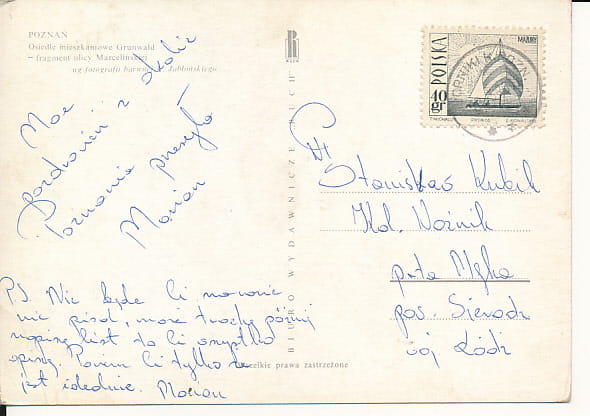 POZNAŃ
Osiedle mieszkaniowe Grunwald
– fragment ulicy Marcelińskiej
wg fotografii barwnej Jabłońskiego
Moc
pozdrowień z okolic
Poznania przesyła
Marian
P.S. Nic będę Ci na razie
nie pisał, może trochę później
napiszę list to Ci wszystko
opiszę. Powiem Ci tylko że
jest idealnie. Marian
BIURO WYDAWNICZE RUCH
wszelkie prawa zastrzeżone
RUCH
MAZURY
POLSKA
40 gr
T. MICHALUK
PWPW
Z. KOWALSKI
K. POZN
Stanisław Kubik
Kol. Woźnik
p-ta Męka
pow Sieradz
woj Łódź